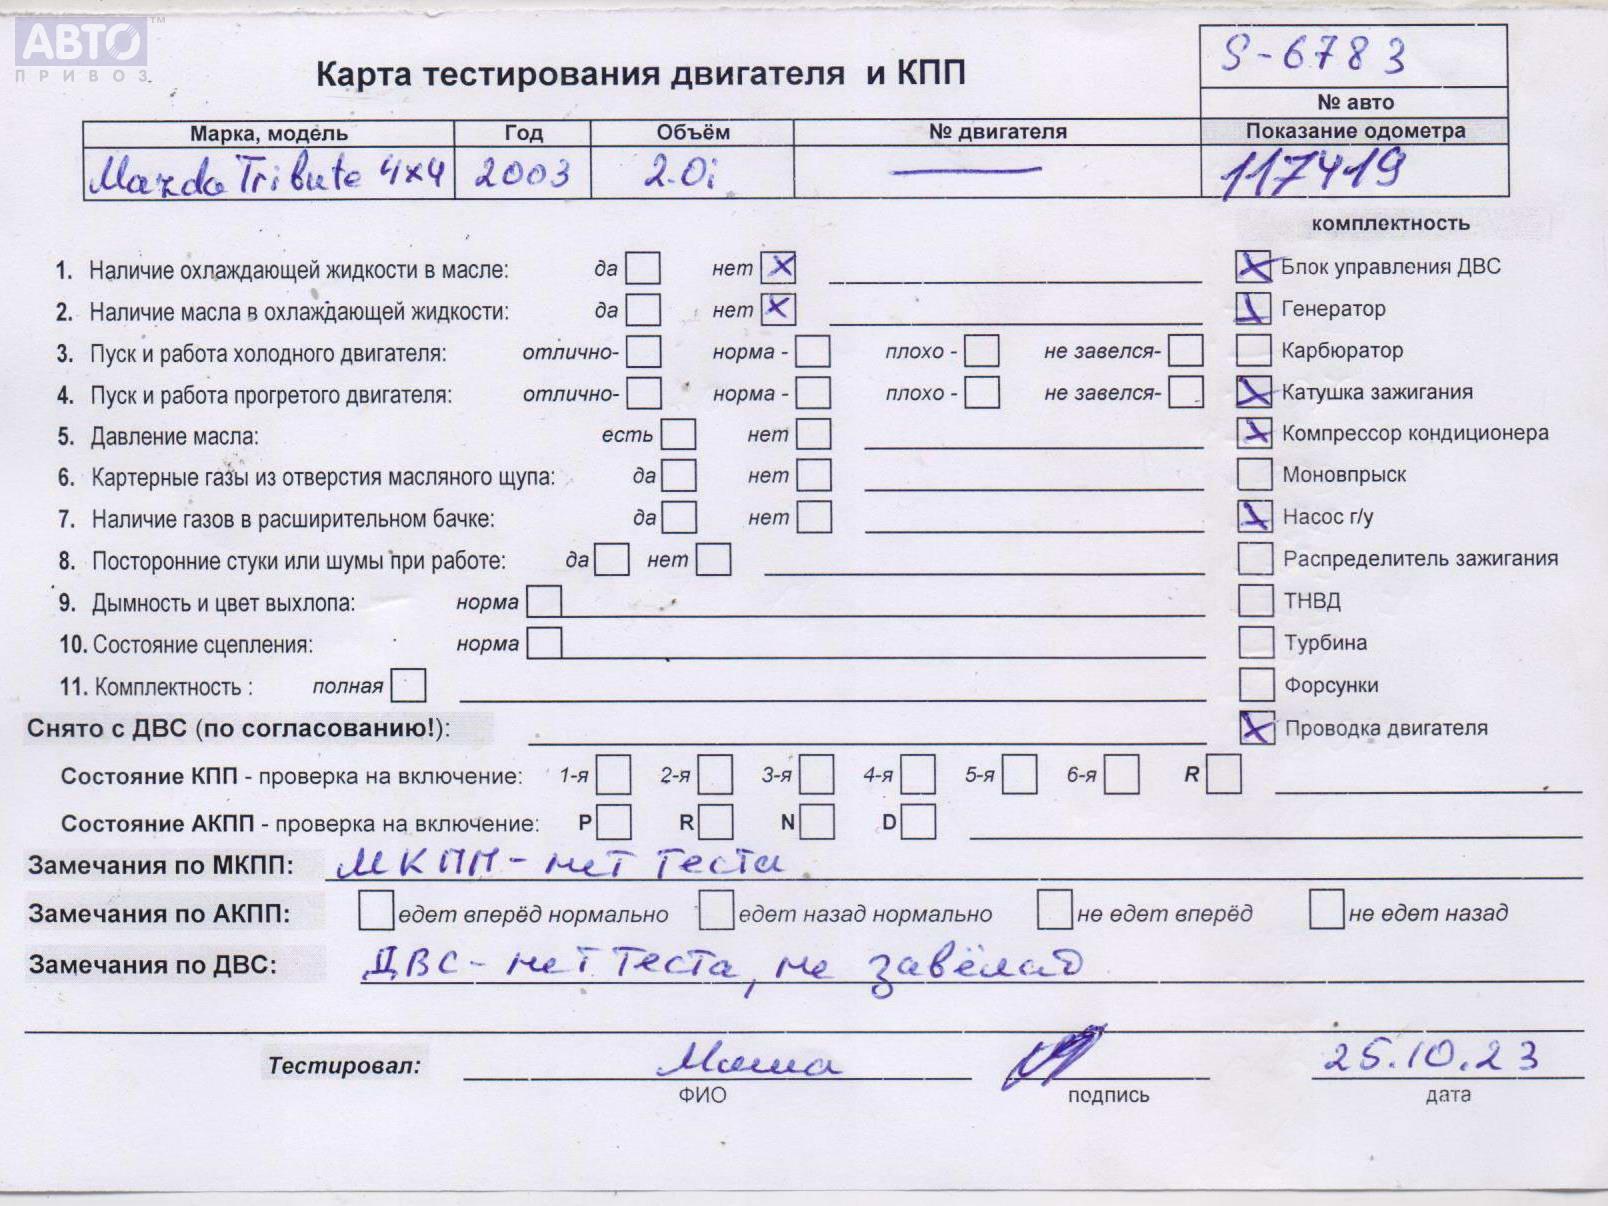 АВТО™
ПРИВОЗ
Карта тестирования двигателя и КПП
S-6783
№ авто
Марка, модель Год Объём № двигателя Показание одометра
Mazda Tribute 4x4 2003 2.0i — 117419
комплектность
1. Наличие охлаждающей жидкости в масле: да нет X
Блок управления ДВС
2. Наличие масла в охлаждающей жидкости: да нет X
Генератор
3. Пуск и работа холодного двигателя: отлично- норма - плохо - не завелся-
Карбюратор
4. Пуск и работа прогретого двигателя: отлично- норма - плохо - не завелся-
Катушка зажигания
5. Давление масла: есть нет
Компрессор кондиционера
6. Картерные газы из отверстия масляного щупа: да нет
Моновпрыск
7. Наличие газов в расширительном бачке: да нет
Насос г/у
8. Посторонние стуки или шумы при работе: да нет
Распределитель зажигания
9. Дымность и цвет выхлопа: норма
ТНВД
10. Состояние сцепления: норма
Турбина
11. Комплектность : полная
Форсунки
Снято с ДВС (по согласованию!):
Проводка двигателя
Состояние КПП - проверка на включение: 1-я 2-я 3-я 4-я 5-я 6-я R
Состояние АКПП - проверка на включение: P R N D
Замечания по МКПП: МКПП - нет теста
Замечания по АКПП: едет вперёд нормально едет назад нормально не едет вперёд не едет назад
Замечания по ДВС: ДВС - нет теста, не завёлся
Тестировал: 25.10.23
ФИО подпись дата